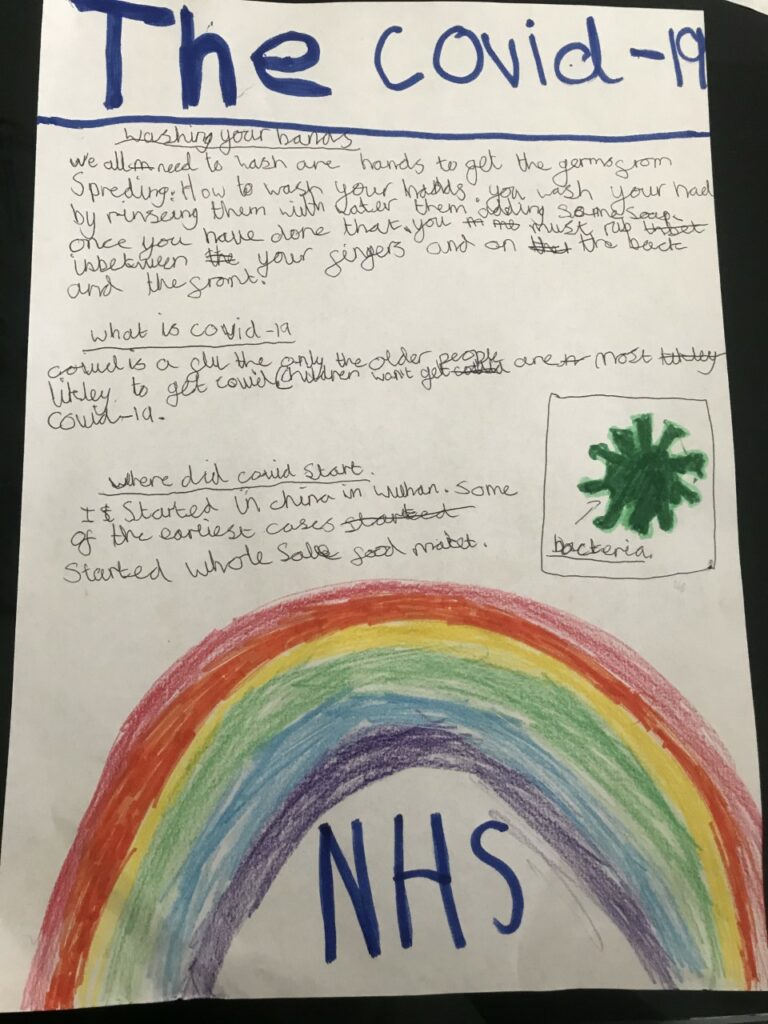 The covid-19
washing your hands
we all need to wash are hands to get the germs from
Spreding. How to wash your hands. you wash your had
by rinseing them with water them adding some soap.
once you have done that. you must rub
inbetween your fingers and on the back
and the front.
what is covid-19
covid is a the only the older people are most
likley to get covid children want get
covid-19.
where did covid start.
It Started in china in wuhan. Some
of the earliest cases started
Started whole Sale food maket.
bacteria.
NHS